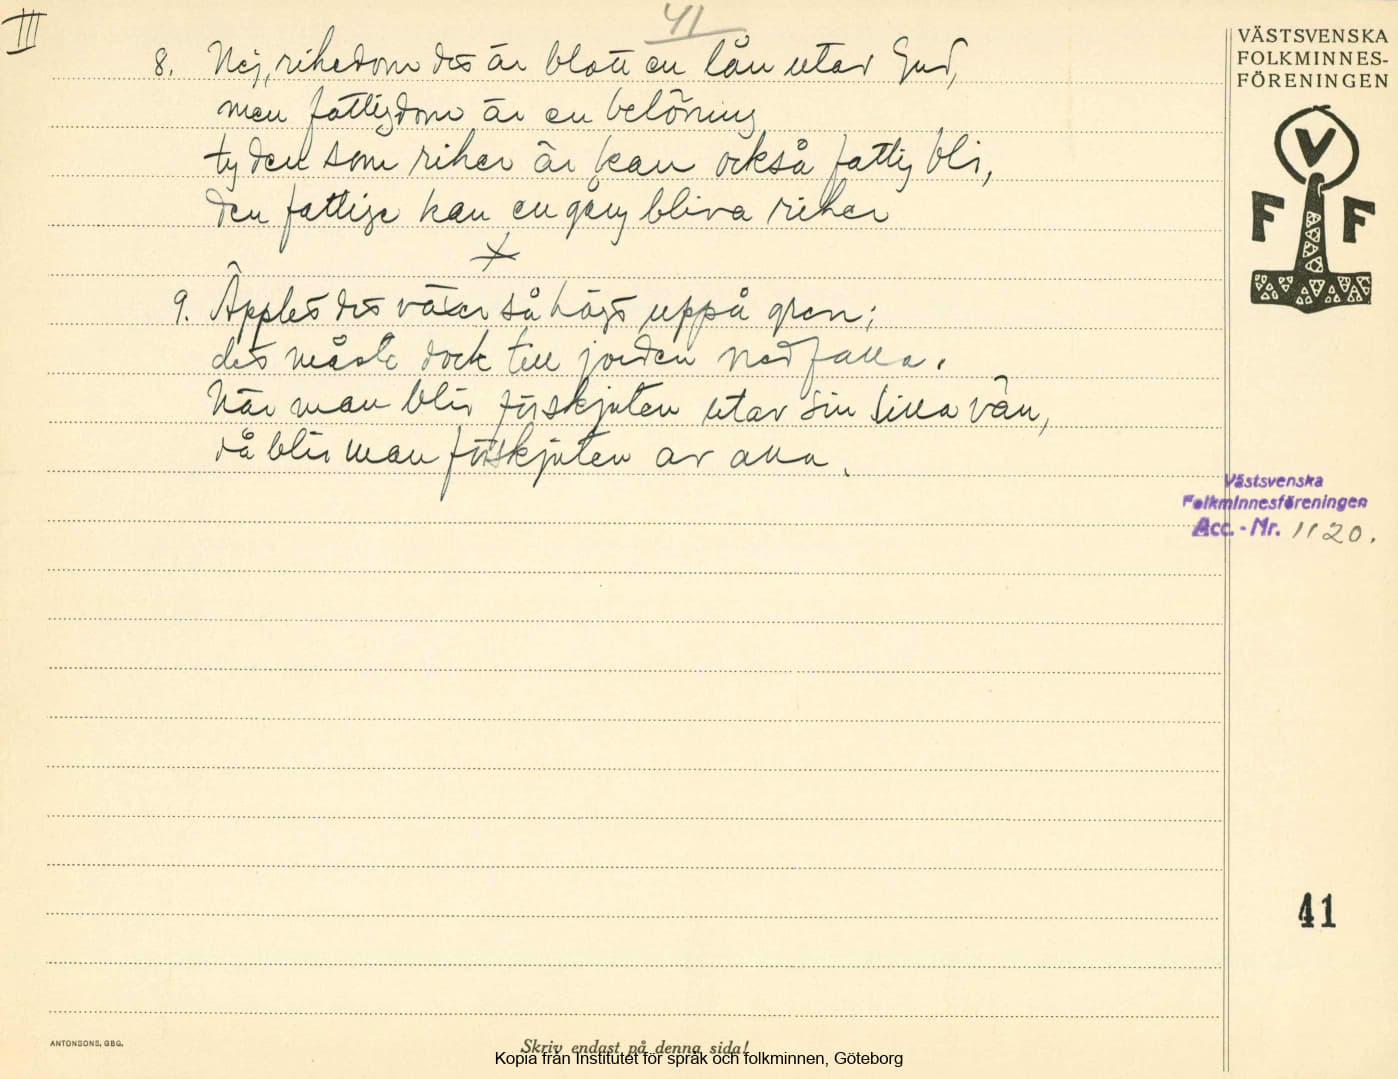 III
41
8. Nej, rikedom det är blott en lån utav Gud,
men fattigdom är en belöning
ty den som riker är kan också fattig bli,
den fattige kan en gång bliva riker
9. Äpplet det växer så högt uppå gren;
det måste dock till jorden nedfalla.
När man blir förskjuten utav sin lilla vän,
då blir man förskjuten av alla.
VÄSTSVENSKA
FOLKMINNES-
FÖRENINGEN
V
F F
Västsvenska
Folkminnesföreningen
Acc. - Nr. 1120.
41
ANTONSONS, GBG.
Skriv endast på denna sida!
Kopia från Institutet för språk och folkminnen, Göteborg